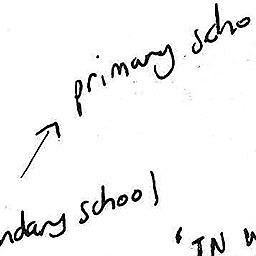 primary scho
ndary school
'IN